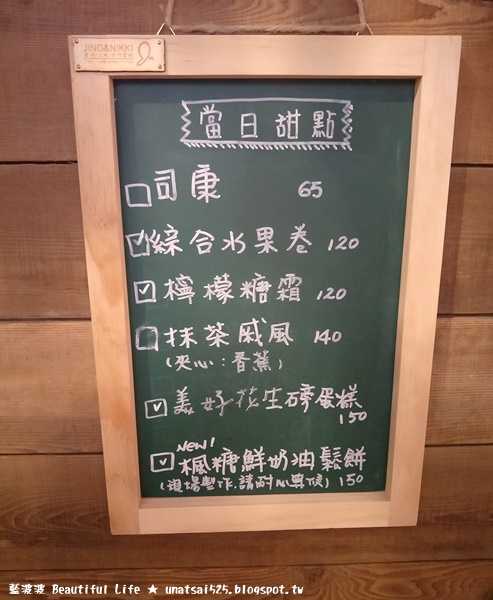 JING&NIKKI
當日甜點
司康 65
綜合水果卷 120
檸檬糖霜 120
抹茶戚風 140
(夾心:香蕉)
美好花生磅蛋糕
150
NEW!
楓糖鮮奶油鬆餅
(現場製作.請耐心等候) 150
藍波波 Beautiful Life ★ unatsai525.blogspot.tw